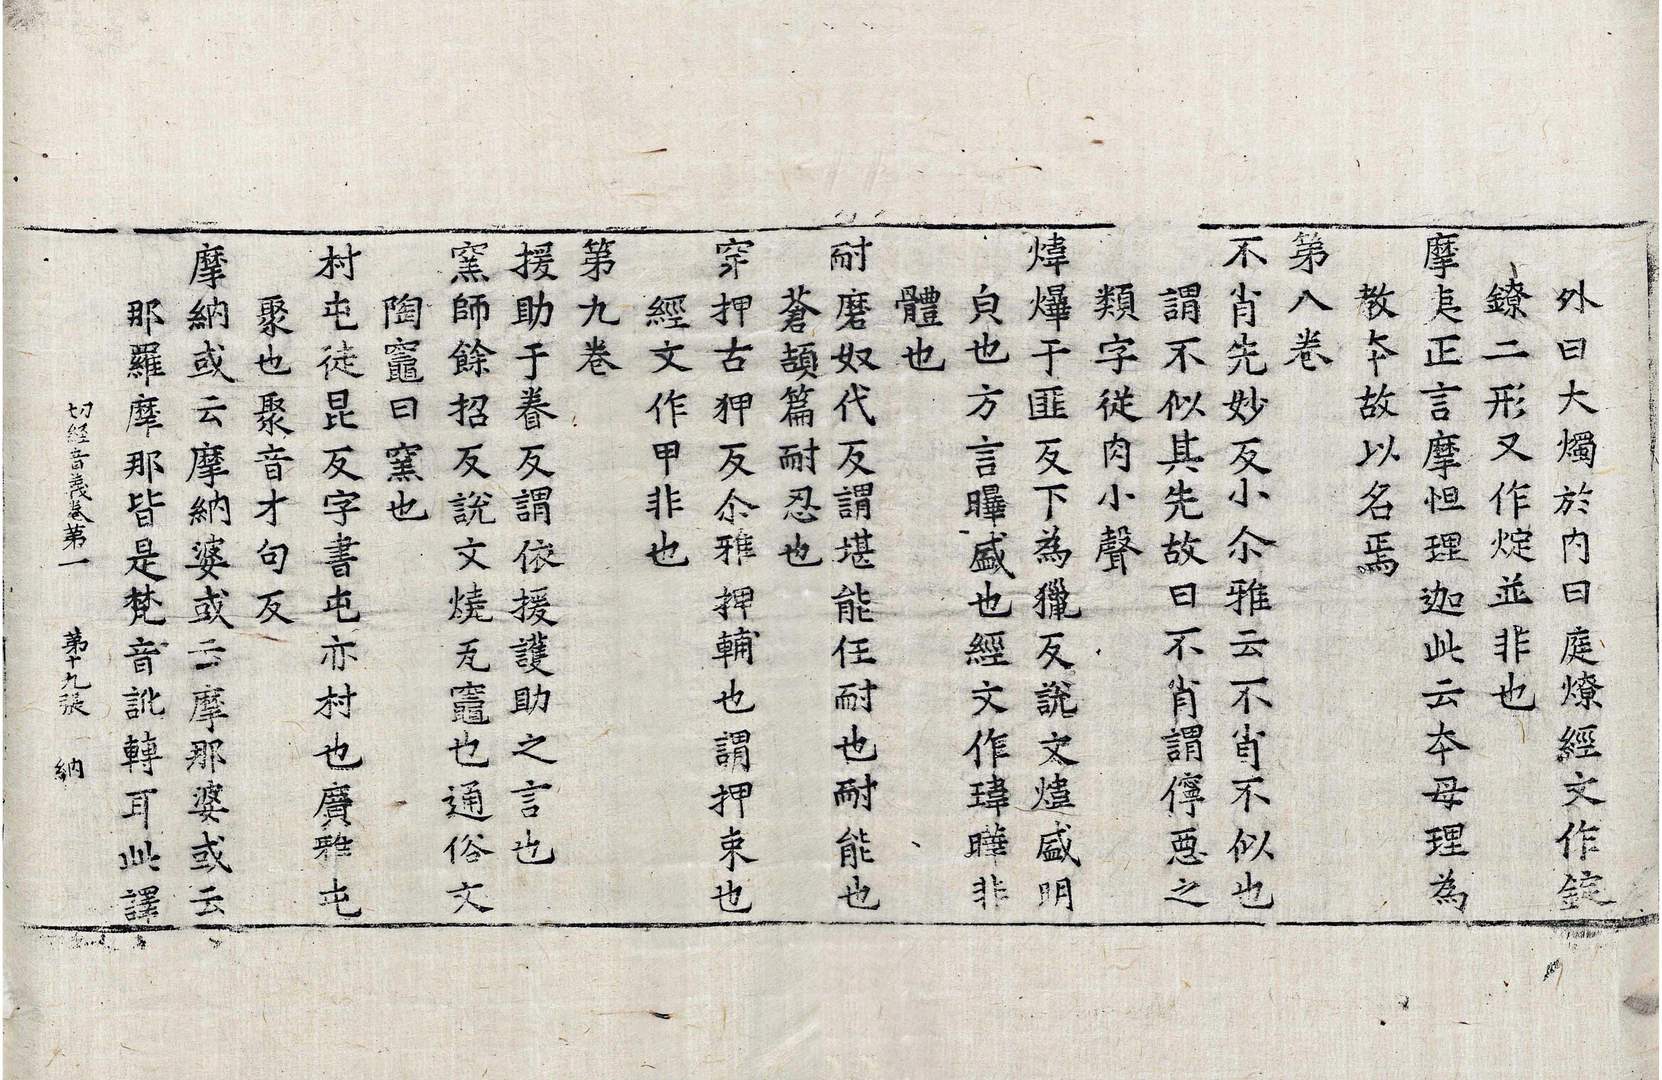 外曰大燭於內曰庭燎經文作錠
鐐二形又作㷮並非也
摩夷正言摩怛理迦此云夲母理為
教夲故以名焉
第八卷
不肖先妙反小尒雅云不肖不似也
謂不似其先故曰不肖謂儜惡之
類字從肉小聲
煒燁于匪反下為獵反說文煒盛明
皃也方言曄盛也經文作瑋曄非
體也
耐磨奴代反謂堪能任耐也耐能也
蒼頡篇耐忍也
穿押古狎反尒雅押輔也謂押束也
經文作甲非也
第九卷
援助于眷反謂依援護助之言也
窯師餘招反說文燒瓦竈也通俗文
陶竈曰窯也
村屯徒昆反字書屯亦村也廣雅屯
聚也聚音才句反
摩納或云摩納婆或云摩那婆或云
那羅摩那皆是梵音訛轉耳此譯
切経音義卷第一 第十九張 納